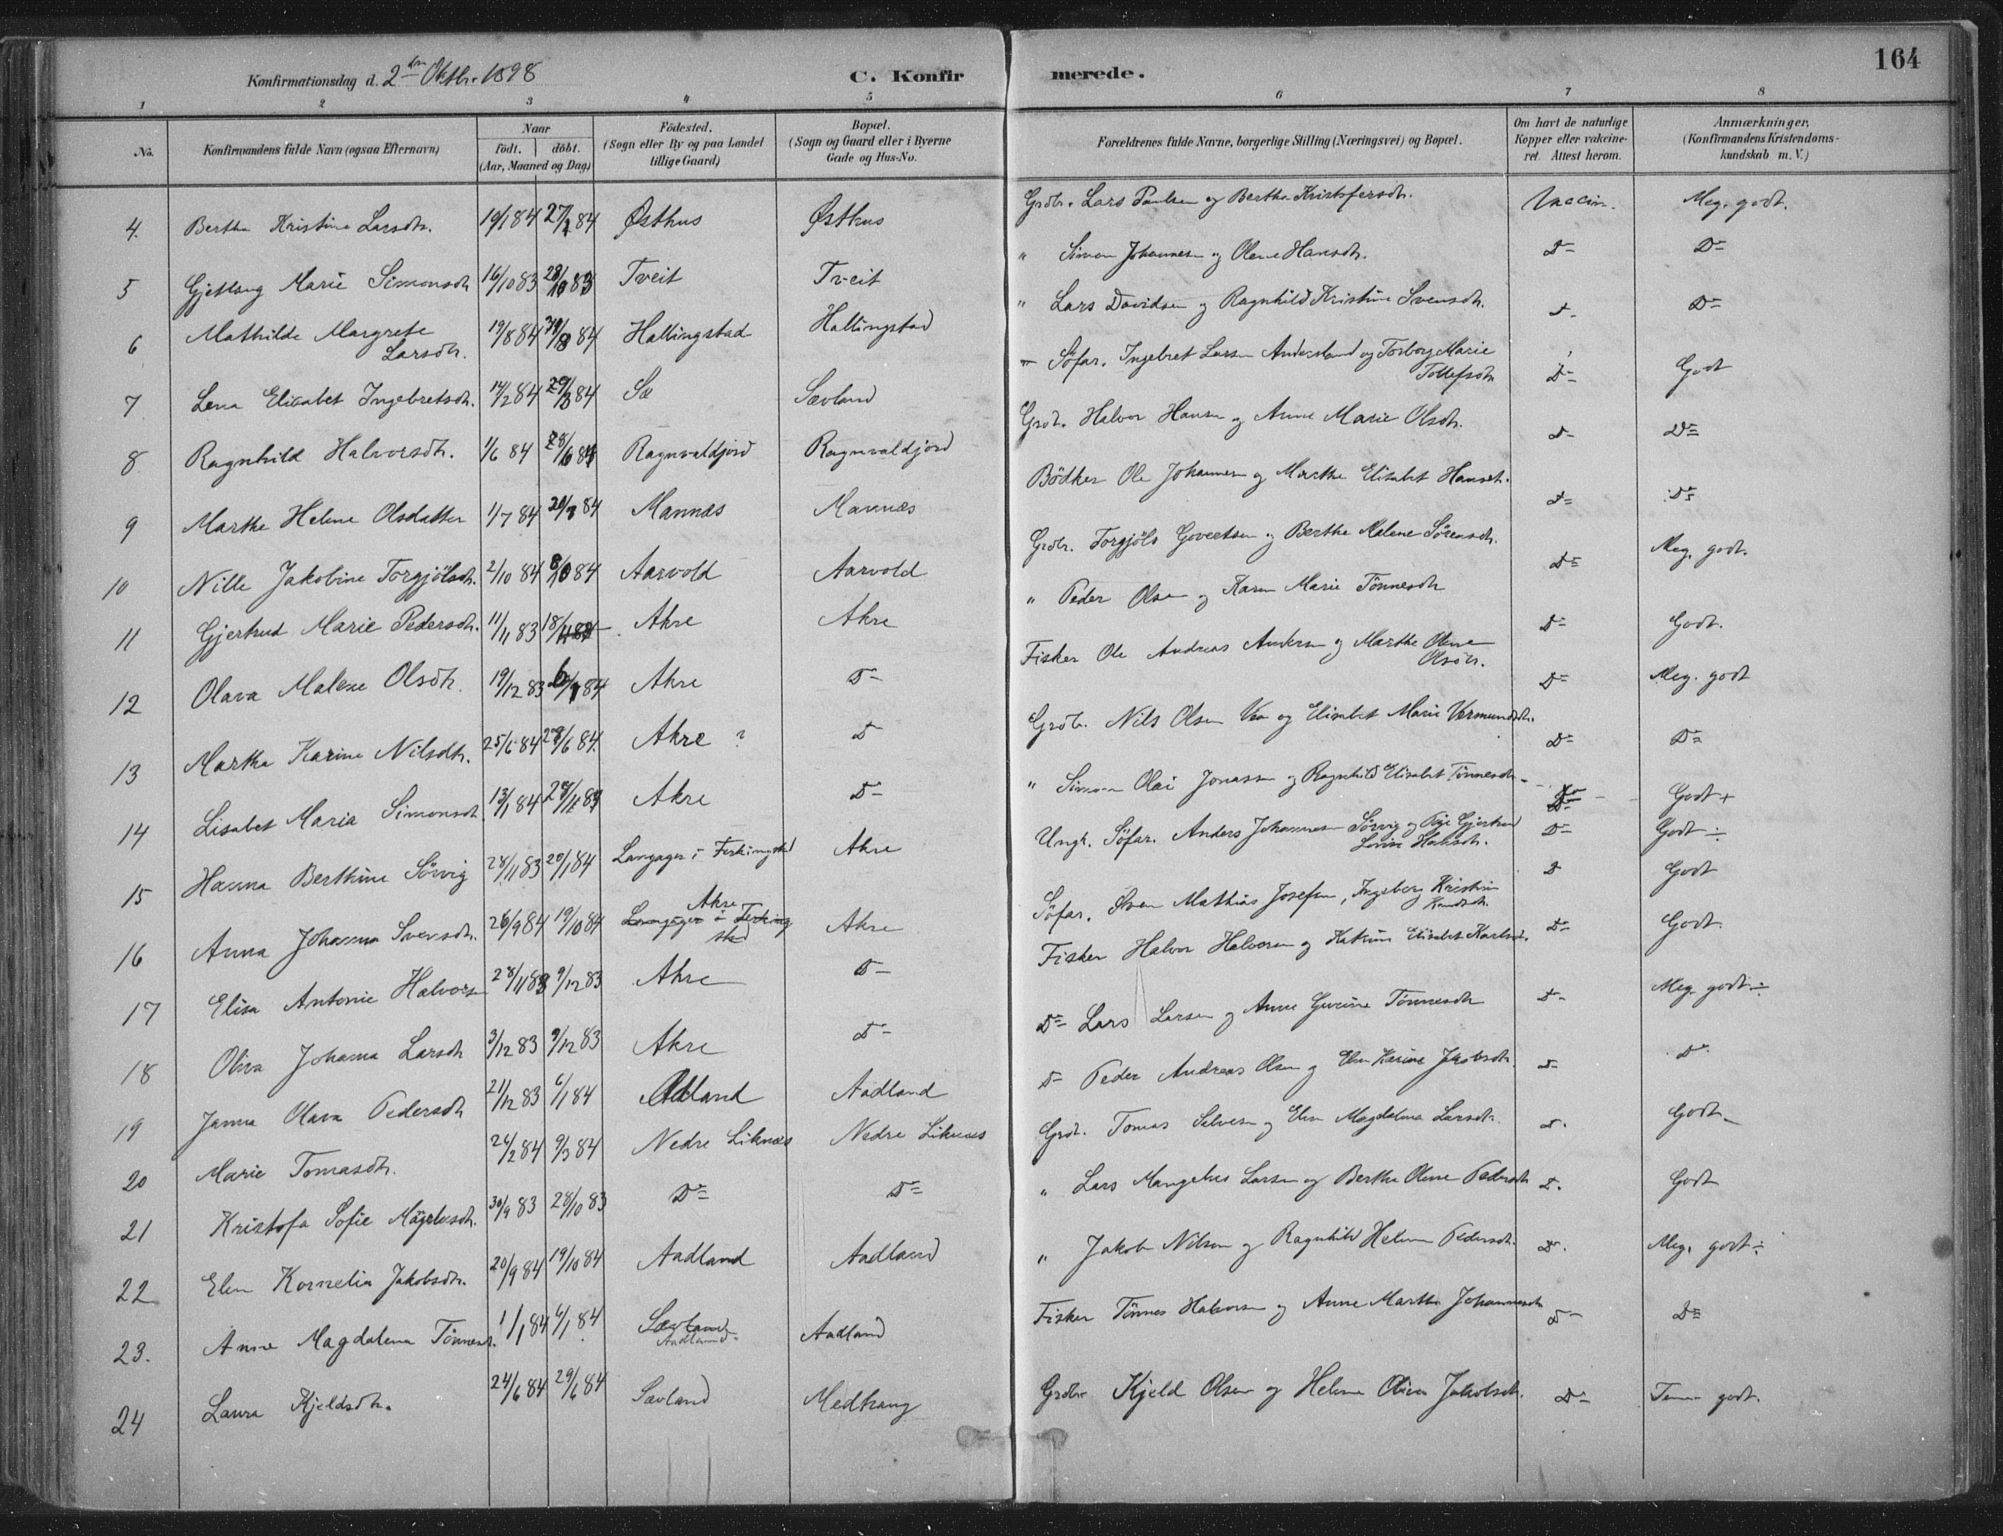 164
Konfirmationsdag d. 2den Oktbr. 1898
C. Konfirmerede.
1 2 3 4 5 6 7 8
No. | Konfirmandens fulde Navn (ogsaa Efternavn) | Naar født. døbt. (Aar, Maaned og Dag) | Fødested. (Sogn eller By og paa Landet tillige Gaard) | Bopæl. (Sogn og Gaard eller i Byerne Gade og Hus-No. | Forældrenes fulde Navne, borgerlige Stilling (Næringsvei) og Bopæl. | Om havt de naturlige Kopper eller vakcineret. Attest herom. | Anmærkninger. (Konfirmandens Kristendomskundskab m. V.)
4. Bertha Kristine Larsdtr. 19/1 84 27/1 84 Østhus Østhus Grdbr. Lars Paulsen og Bertha Kristofersdtr. Vaccin. Meg. godt.
5 Marie Simonsdtr 16/10 83 28/10 83 Tveit Tveit " Simon Johannesen og Olene Hansdtr. D- D-
6 Mathilde Margrete Larsdtr. 19/8 84 /8 84 Hallingstad Hallingstad " Lars Davidsen og Ragnhild Kristine Svensdtr. D- D-
7 Lena Elisabet Ingebretsdtr. 14/2 84 29/3 84 Sæ Sævland Søfar. Ingebret Larsen og Torborg Marie Tollefsdtr D- Godt
8 Ragnhild Halvorsdtr. 1/6 84 /6 84 Ragnvaldjord Ragnvaldjord Grdb. Halvor Hansen og Anne Marie Olsdtr. D- D-
9 Marthe Helene Olsdatter 1/7 84 20/7 84 Mannæs Mannæs Bødker Ole Johannesen og Marthe Elisabet Hansdtr. D- D-
10 Nille Jakobine Torgjølsdtr. 2/10 84 /10 84 Aarvold Aarvold Grdbr. Torgjøls Govertsen og Berthe Malene Sørensdtr. D- Meg. godt.
11 Gjertrud Marie Pedersdtr. 11/11 83 18/11 Akre Akre " Peder Olsen og Karen Marie Tønnesdtr D- Godt.
12 Olava Malene Olsdtr. 19/12 83 6/1 84 Akre D- Fisker Ole Andreas Andersen og Marthe Olene Olsdtr. D- Meg. godt
13 Martha Karine Nilsdtr. 25/6 84 29/6 84. Akre ? D- Grdb. Nils Olsen Vea og Elisabet Marie Vermundsdtr. D- D-
14 Lisabet Maria Simonsdtr. 13/1 84 Akre D- " Simon Olai Jonassen og Ragnhild Elisabet Tønnesdtr D- Godt +
15 Hanna Berthine Sørvig 28/11 83 20/1 84 Langager i Ferkingstad Akre Ungk. Søfar. Anders Johannesen Sørvig og Pige Gjertrud D- Godt ÷
16 Anna Johanna Svensdtr. 26/9 84 19/10 84 Akre Langager i Ferkingstad Akre Søfar. Sven Mathias Josefsen, Ingeborg Kristine Knudsdtr. D Godt
17 Elisa Antonie Halvorsen 28/11 83 9/12 83 Akre D- Fisker Halvor Halvorsen og Elisabet Karlsdtr. D- Godt
18 Oliva Johanna Larsdtr 3/12 83 9/12 83 Akre D- D- Lars Larsen og Anne Gurine Tønnesdtr D- Meg. godt ÷
19 Janna Olava Pedersdtr 21/12 83 6/1 84 Adland Aadland D- Peder Andreas Olsen og Elen Karine Jakobsdtr D- D-
20 Marie Tomasdtr. 24/2 84 9/3 84 Nedre Liknæs Nedre Liknæs Grdb. Tomas og Elen Magdalena Larsdtr. D- Godt
21 Kristofa Sofie 30/9 83 28/10 83 D- D- " Lars Larsen og Berthe Olene Pedersdtr D. Godt
22 Elen Kornelia Jakobsdtr. 20/9 84 19/10 84 Aadland Aadland " Jakob Nilsen og Ragnhild Helene Pedersdtr. D. Meg. godt ÷
23. Anne Magdalena Tønnesdtr. 1/1 84 6/1 84 Sævland Aadland Aadland Fisker Tønnes Halvorsen og Anne Martha Johannesdtr D- D-
24 Laura Kjeldsdtr. 24/6 84 29/6 84 Sævland Medhaug Grdbr Kjeld Olsen og Helene Jakobsdtr. D- Tem. godt.